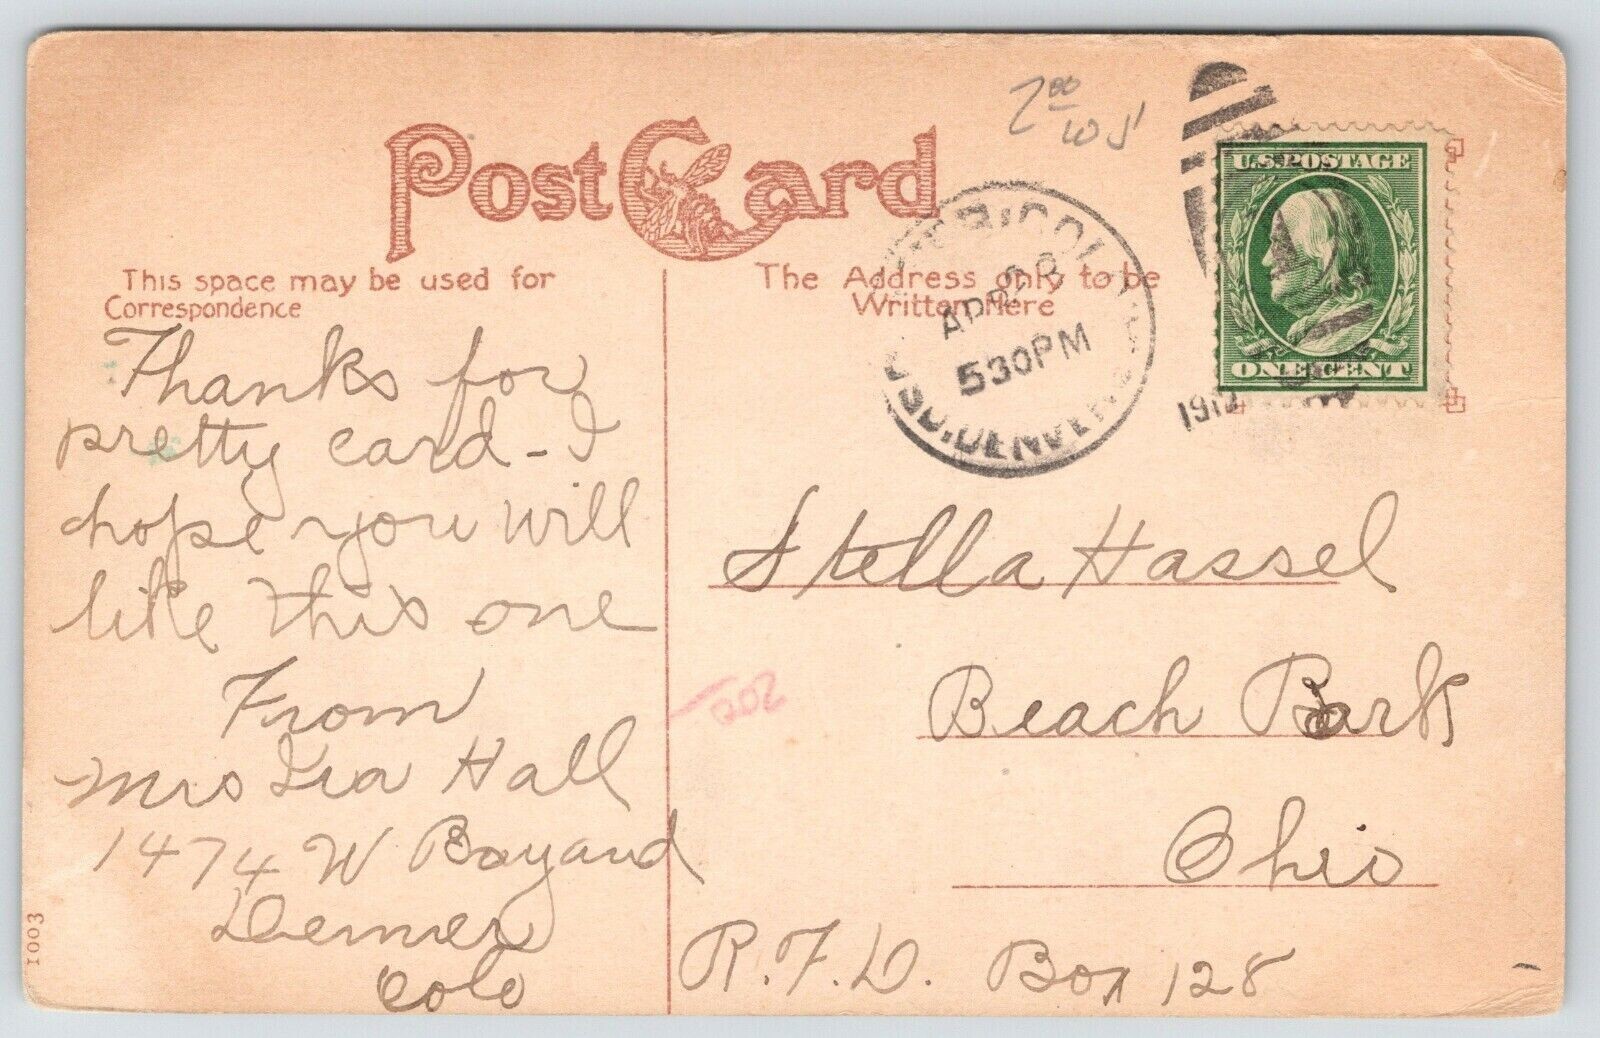 2 00
Post Card
U.S. POSTAGE
ONE CENT
APR 28
5 30 PM
SO. DENVER
1912
This space may be used for
Correspondence
The Address only to be
Written Here
Thanks for
pretty card - I
hope you will
like this one
From
Mrs Hall
1474 W Bayaud
Denver
Colo
Stella Hassel
Beach Park
Ohio
R.F.D. Box 128
202
1003